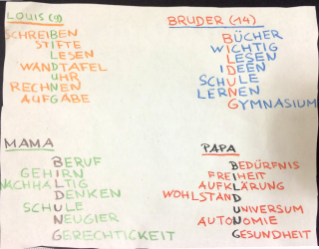 LOUIS (9)
SCHREIBEN
STIFTE
LESEN
WANDTAFEL
UHR
RECHNEN
AUFGABE
BRUDER (14)
BÜCHER
WICHTIG
LESEN
IDEEN
SCHULE
LERNEN
GYMNASIUM
MAMA
BERUF
GEHIRN
NACHHALTIG
DENKEN
SCHULE
NEUGIER
GERECHTIGKEIT
PAPA
BEDÜRFNIS
FREIHEIT
AUFKLÄRUNG
WOHLSTAND
UNIVERSUM
AUTONOMIE
GESUNDHEIT